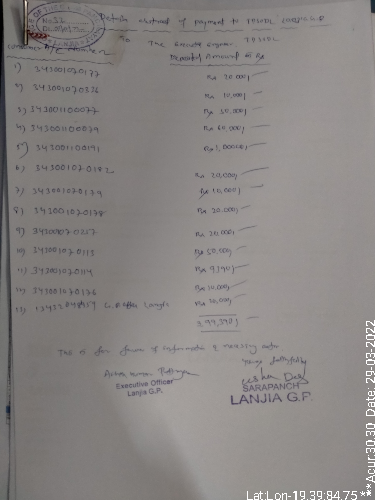 Details of payment to TPSODL Lanjia G.P
No. 37
To The Executive Engineer TPSODL
consumer A/C Number
Deposited Amount in Rs
1) 343001070177 Rs 20,000/-
2) 343001070326 Rs 10,000/-
3) 343001100077 Rs 50,000/-
4) 343001100079 Rs 60,000/-
5) 343001100191 Rs 1,00000/-
6) 343001070182 Rs 20,000/-
7) 343001070179 Rs 10,000/-
8) 343001070178 Rs 20,000/-
9) 343001070257 Rs 20,000/-
10) 343001070113 Rs 50,000/-
11) 343001070114 Rs 9390/-
12) 343001070176 Rs 10,000/-
13) G.P office Lanjia Rs 20,000/-
This is for favour of information & necessary action
Yours faithfully
Executive Officer
Lanjia G.P.
SARAPANCH
LANJIA G.P.
Lat:Lon-19.39:84.75***Acur:30.30 Date, 29-03-2022